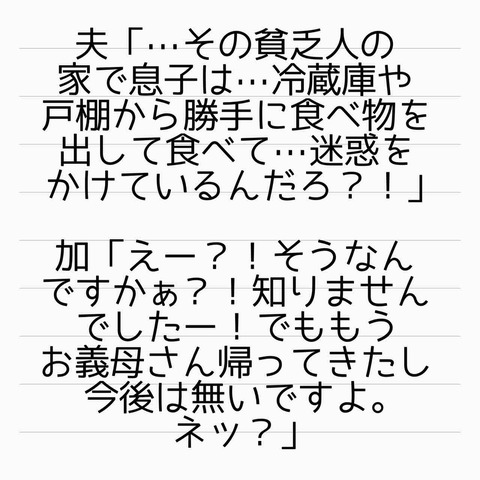 夫「…その貧乏人の
家で息子は…冷蔵庫や
戸棚から勝手に食べ物を
出して食べて…迷惑を
かけているんだろ？！」
加「えー？！そうなん
ですかぁ？！知りません
でしたー！でももう
お義母さん帰ってきたし
今後は無いですよ。
ネッ？」